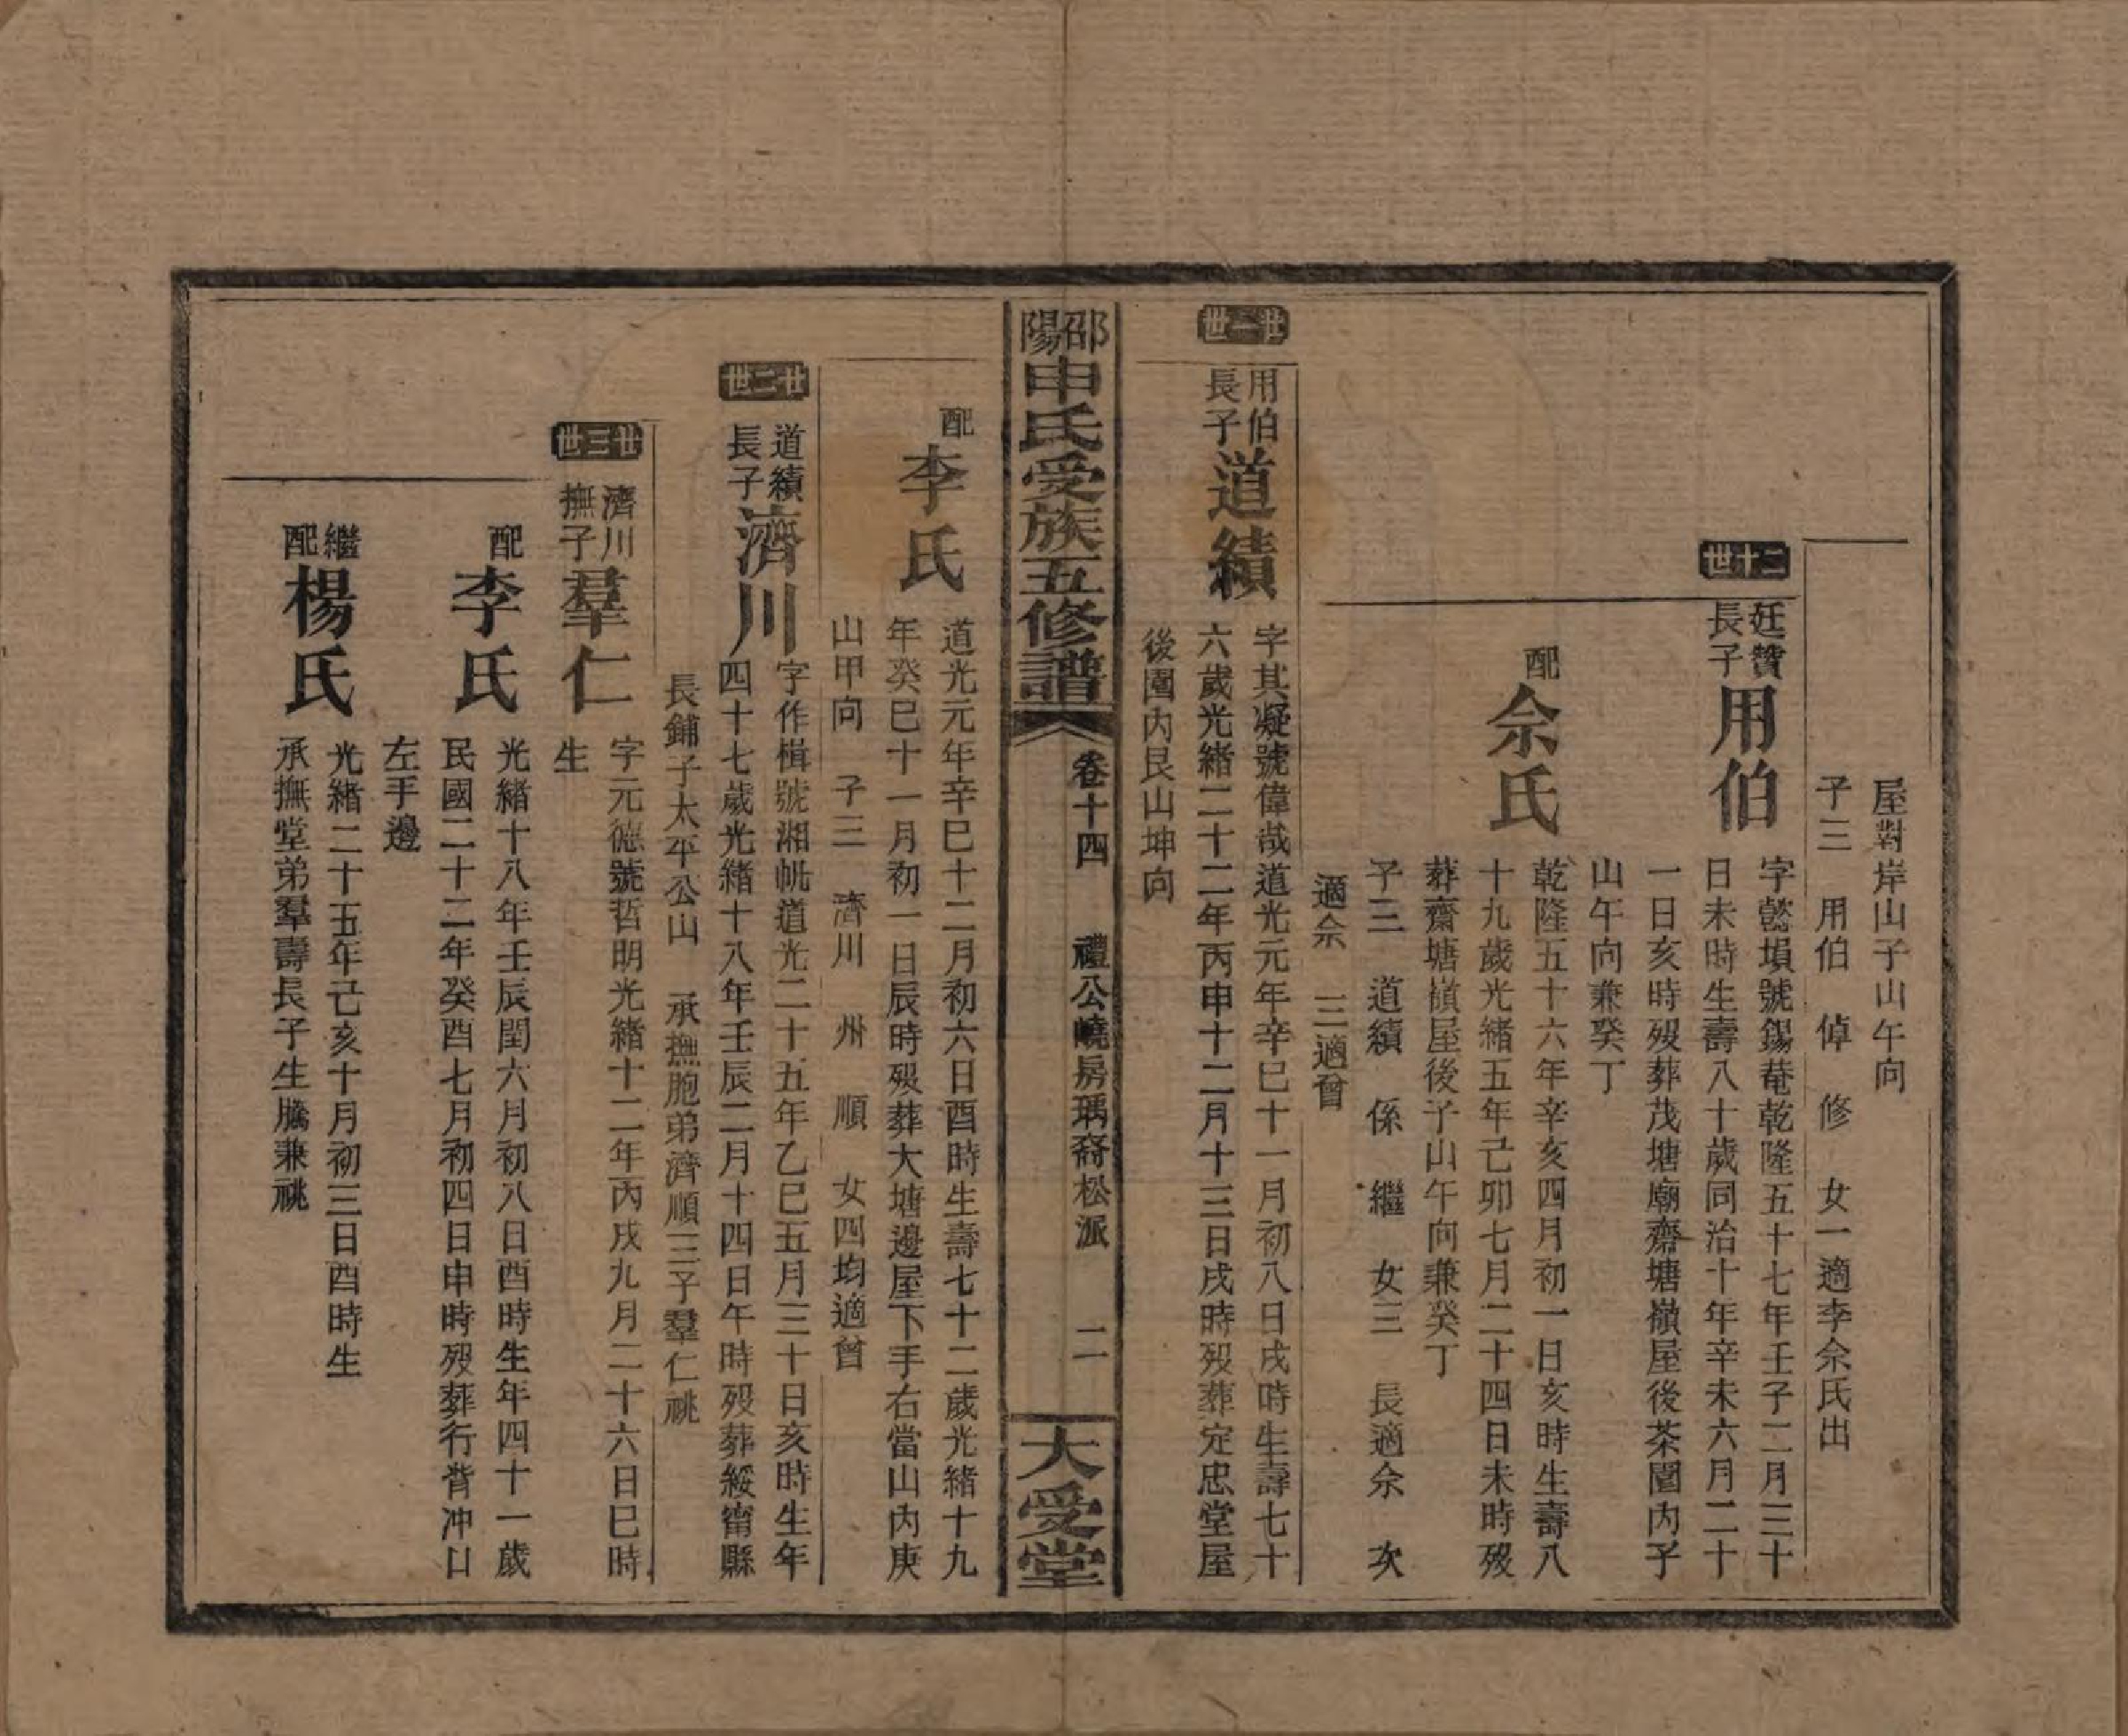 屋對岸山子山午向
子三　用伯　倬　修　女一適李佘氏出
二十世
廷贊
長子
用伯
字懿塤號錫菴乾隆五十七年壬子二月三十
日未時生壽八十歲同治十年辛未六月二十
一日亥時歿葬茂塘廟齋塘嶺屋後茶園內子
山午向兼癸丁
配
佘氏
乾隆五十六年辛亥四月初一日亥時生壽八
十九歲光緒五年己卯七月二十四日未時歿
葬齋塘嶺屋後子山午向兼癸丁
子三　道績　係　繼　女三　長適佘　次
適佘　三適曾
廿一世
用伯
長子
道績
字其凝號偉哉道光元年辛巳十一月初八日戌時生壽七十
六歲光緒二十二年丙申十二月十三日戌時歿葬定忠堂屋
後園內艮山坤向
邵陽申氏受族五修譜
卷十四　禮公嶢房瑀裔松派　二
大受堂
配
李氏
道光元年辛巳十二月初六日酉時生壽七十二歲光緒十九
年癸巳十一月初一日辰時歿葬大塘邊屋下手右當山內庚
山甲向　子三　濟川　州　順　女四均適曾
廿二世
道績
長子
濟川
字作楫號湘帆道光二十五年乙巳五月三十日亥時生年
四十七歲光緒十八年壬辰二月十四日午時歿葬綏甯縣
長鋪子太平公山　承撫胞弟濟順三子羣仁祧
廿三世
濟川
撫子
羣仁
字元德號哲明光緒十二年丙戌九月二十六日巳時
生
配
李氏
光緒十八年壬辰閏六月初八日酉時生年四十一歲
民國二十二年癸酉七月初四日申時歿葬行背冲口
左手邊
繼
配
楊氏
光緒二十五年己亥十月初三日酉時生
承撫堂弟羣壽長子生騰兼祧